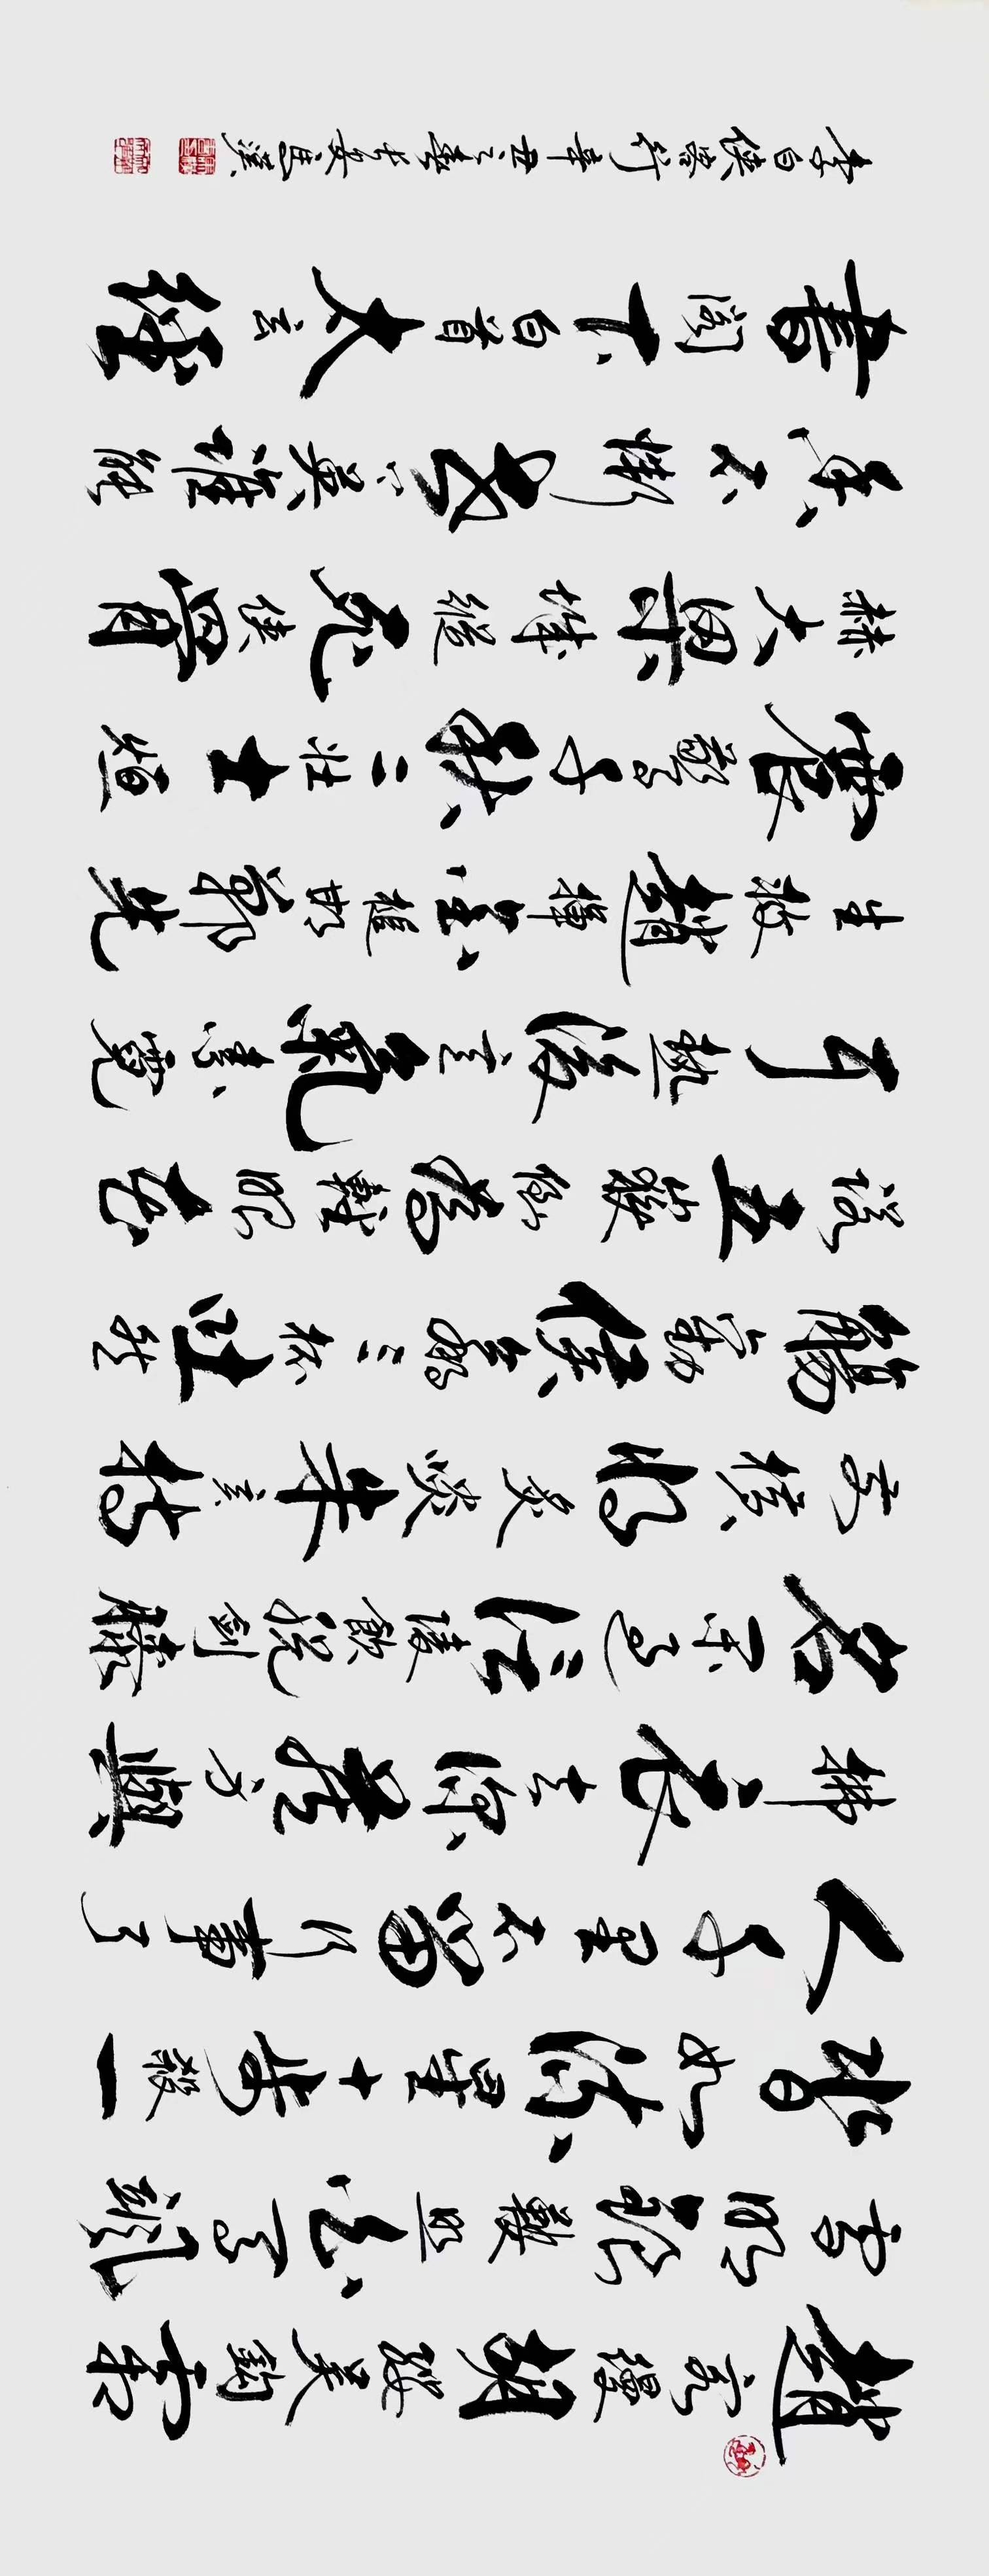 趙客縵胡纓吳鉤霜
雪明銀鞍照白馬颯
沓如流星十步殺一
人千里不留行事了
拂衣去深藏身與
名閑過信陵飲脫劍膝
前橫將炙啖朱亥持
觴勸侯嬴三杯吐然
諾五嶽倒為輕眼花
耳熱後意氣素霓
生救趙揮金槌邯鄲先
震驚千秋二壯士烜
赫大梁城縱死俠骨
香不慚世上英誰能
書閣下白首太玄經
李白俠客行辛丑之春長安